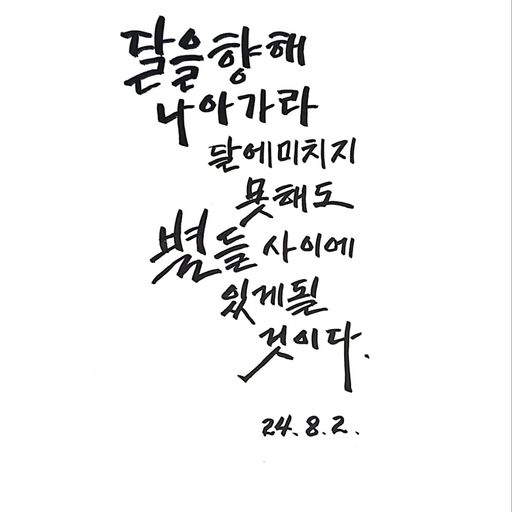 달을향해
나아가라
달에미치지
못해도
별들 사이에
있게될
것이다.
24.8.2.